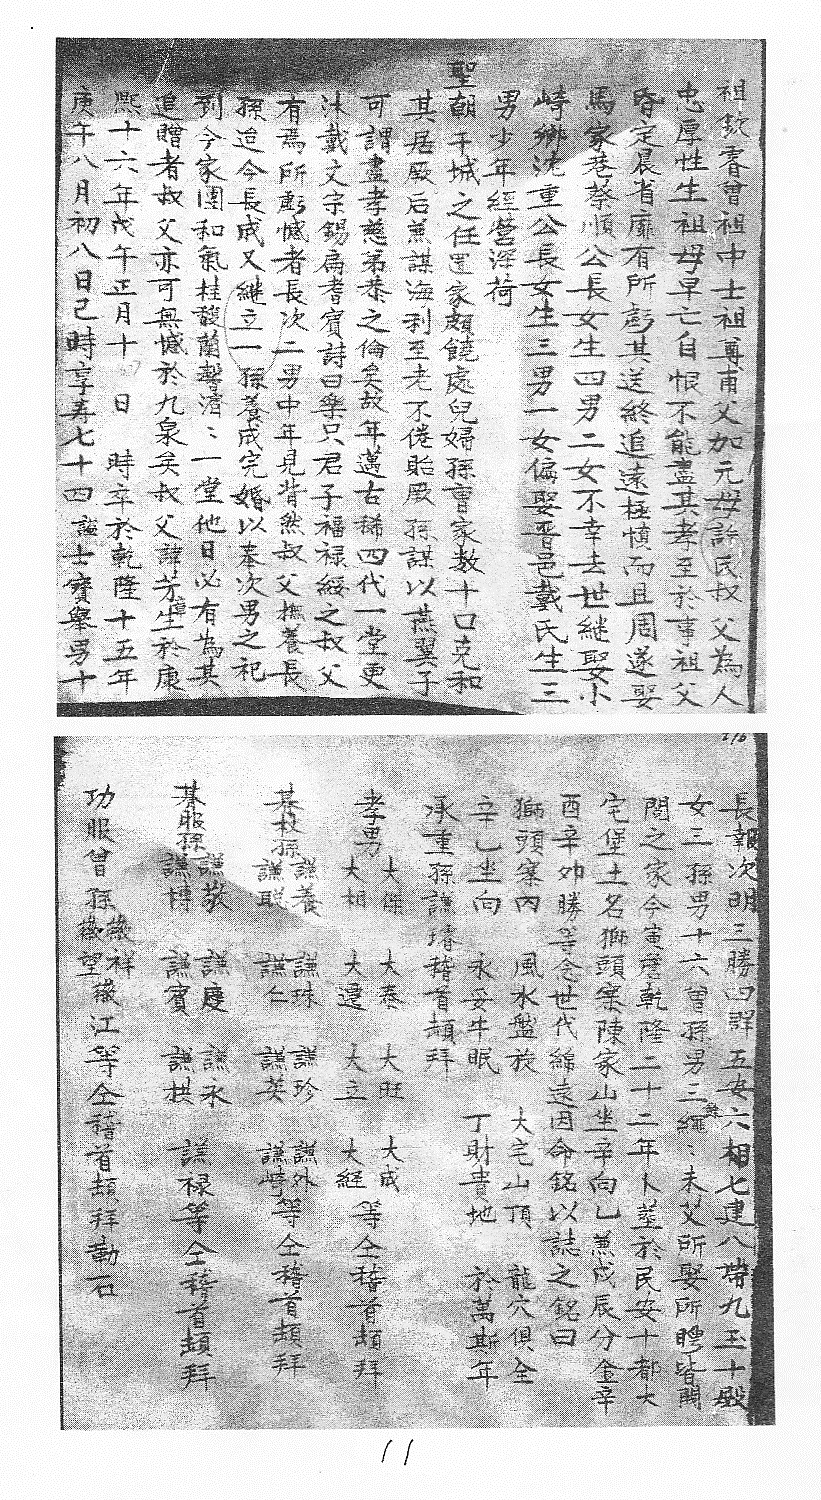 祖欽睿曾祖中士祖尊甫父加元母許氏叔父為人
忠厚性生祖母早亡自恨不能盡其孝至於事祖父
昏定晨省靡有所虧其送終追遠極慎而且周遂娶
馬家巷蔡順公長女生四男二女不幸去世継娶小
崎鄉沈重公長女生三男一女偏娶晋邑戴氏生三
男少年經營深荷
聖朝干城之任置家頗饒處兒婦孫曾家教十口克和
其居厥后蕉謀海利至老不倦貽厥孫謀以燕翼子
可謂盡孝慈弟恭之倫矣故年邁古稀四代一堂更
沐戴文宗錫扁耆賓詩曰樂只君子福禄綏之叔父
有焉所虧憾者長次二男中年見背然叔父撫養長
孫迨今長成又継立一孫養成完婚以奉次男之祀
到今家團和氣桂馥蘭馨濟〻一堂他日必有為其
追贈者叔父亦可無憾於九泉矣叔父諱芳生於康
熙十六年戊午正月十 日 時卒於乾隆十五年
庚午八月初八日己時享寿七十四 謚士賓舉男十
長報次明三勝四詳五安六相七建八 九玉十殿
女三孫男十六曾孫男三繩〻未艾所娶所聘皆閥
閱之家今 乾隆二十二年卜塟於民安十都大
宅堡土名獅頭寨陳家山坐辛向乙蕉戌辰分金辛
酉辛卯勝 念世代綿遠因命銘以誌之銘曰
獅頭寨内 風水盤旋 大宅山頂 龍穴俱全
辛乙坐向 永妥牛眠 丁財貴地 於萬斯年
承重孫謙 稽首頡拜
孝男 大傑 大泰 大旺 大成
大相 大還 大立 大經 等仝稽首頡拜
朞杖孫 謙養 謙珠 謙珍 謙外
謙聪 謙仁 謙英 謙崎 等仝稽首頡拜
朞服孫 謙敬 謙慶 謙永
謙博 謙賓 謙拱 謙禄等仝稽首頡拜
功服曾孫 徽祥
徽望 徽江等仝稽首頡拜勒石
11